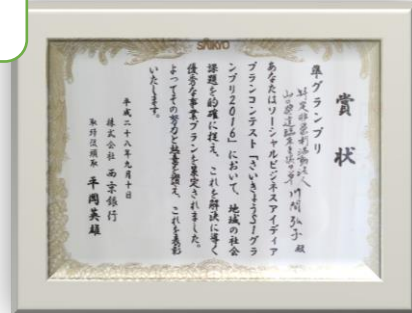 SAIKYO
賞状
準グランプリ
特定非営利活動法人
川間弘子 殿
あなたはソーシャルビジネスアイディア
プランコンテスト「さいきょうYSBグラ
ンプリ2016」において、地域の社会
課題を的確に捉え、これを解決に導く
優秀な事業プランを策定されました。
よってその努力と栄誉を讃え、これを表彰
いたします。
平成二十八年九月十日
株式会社 西京銀行
取締役頭取 平岡英雄